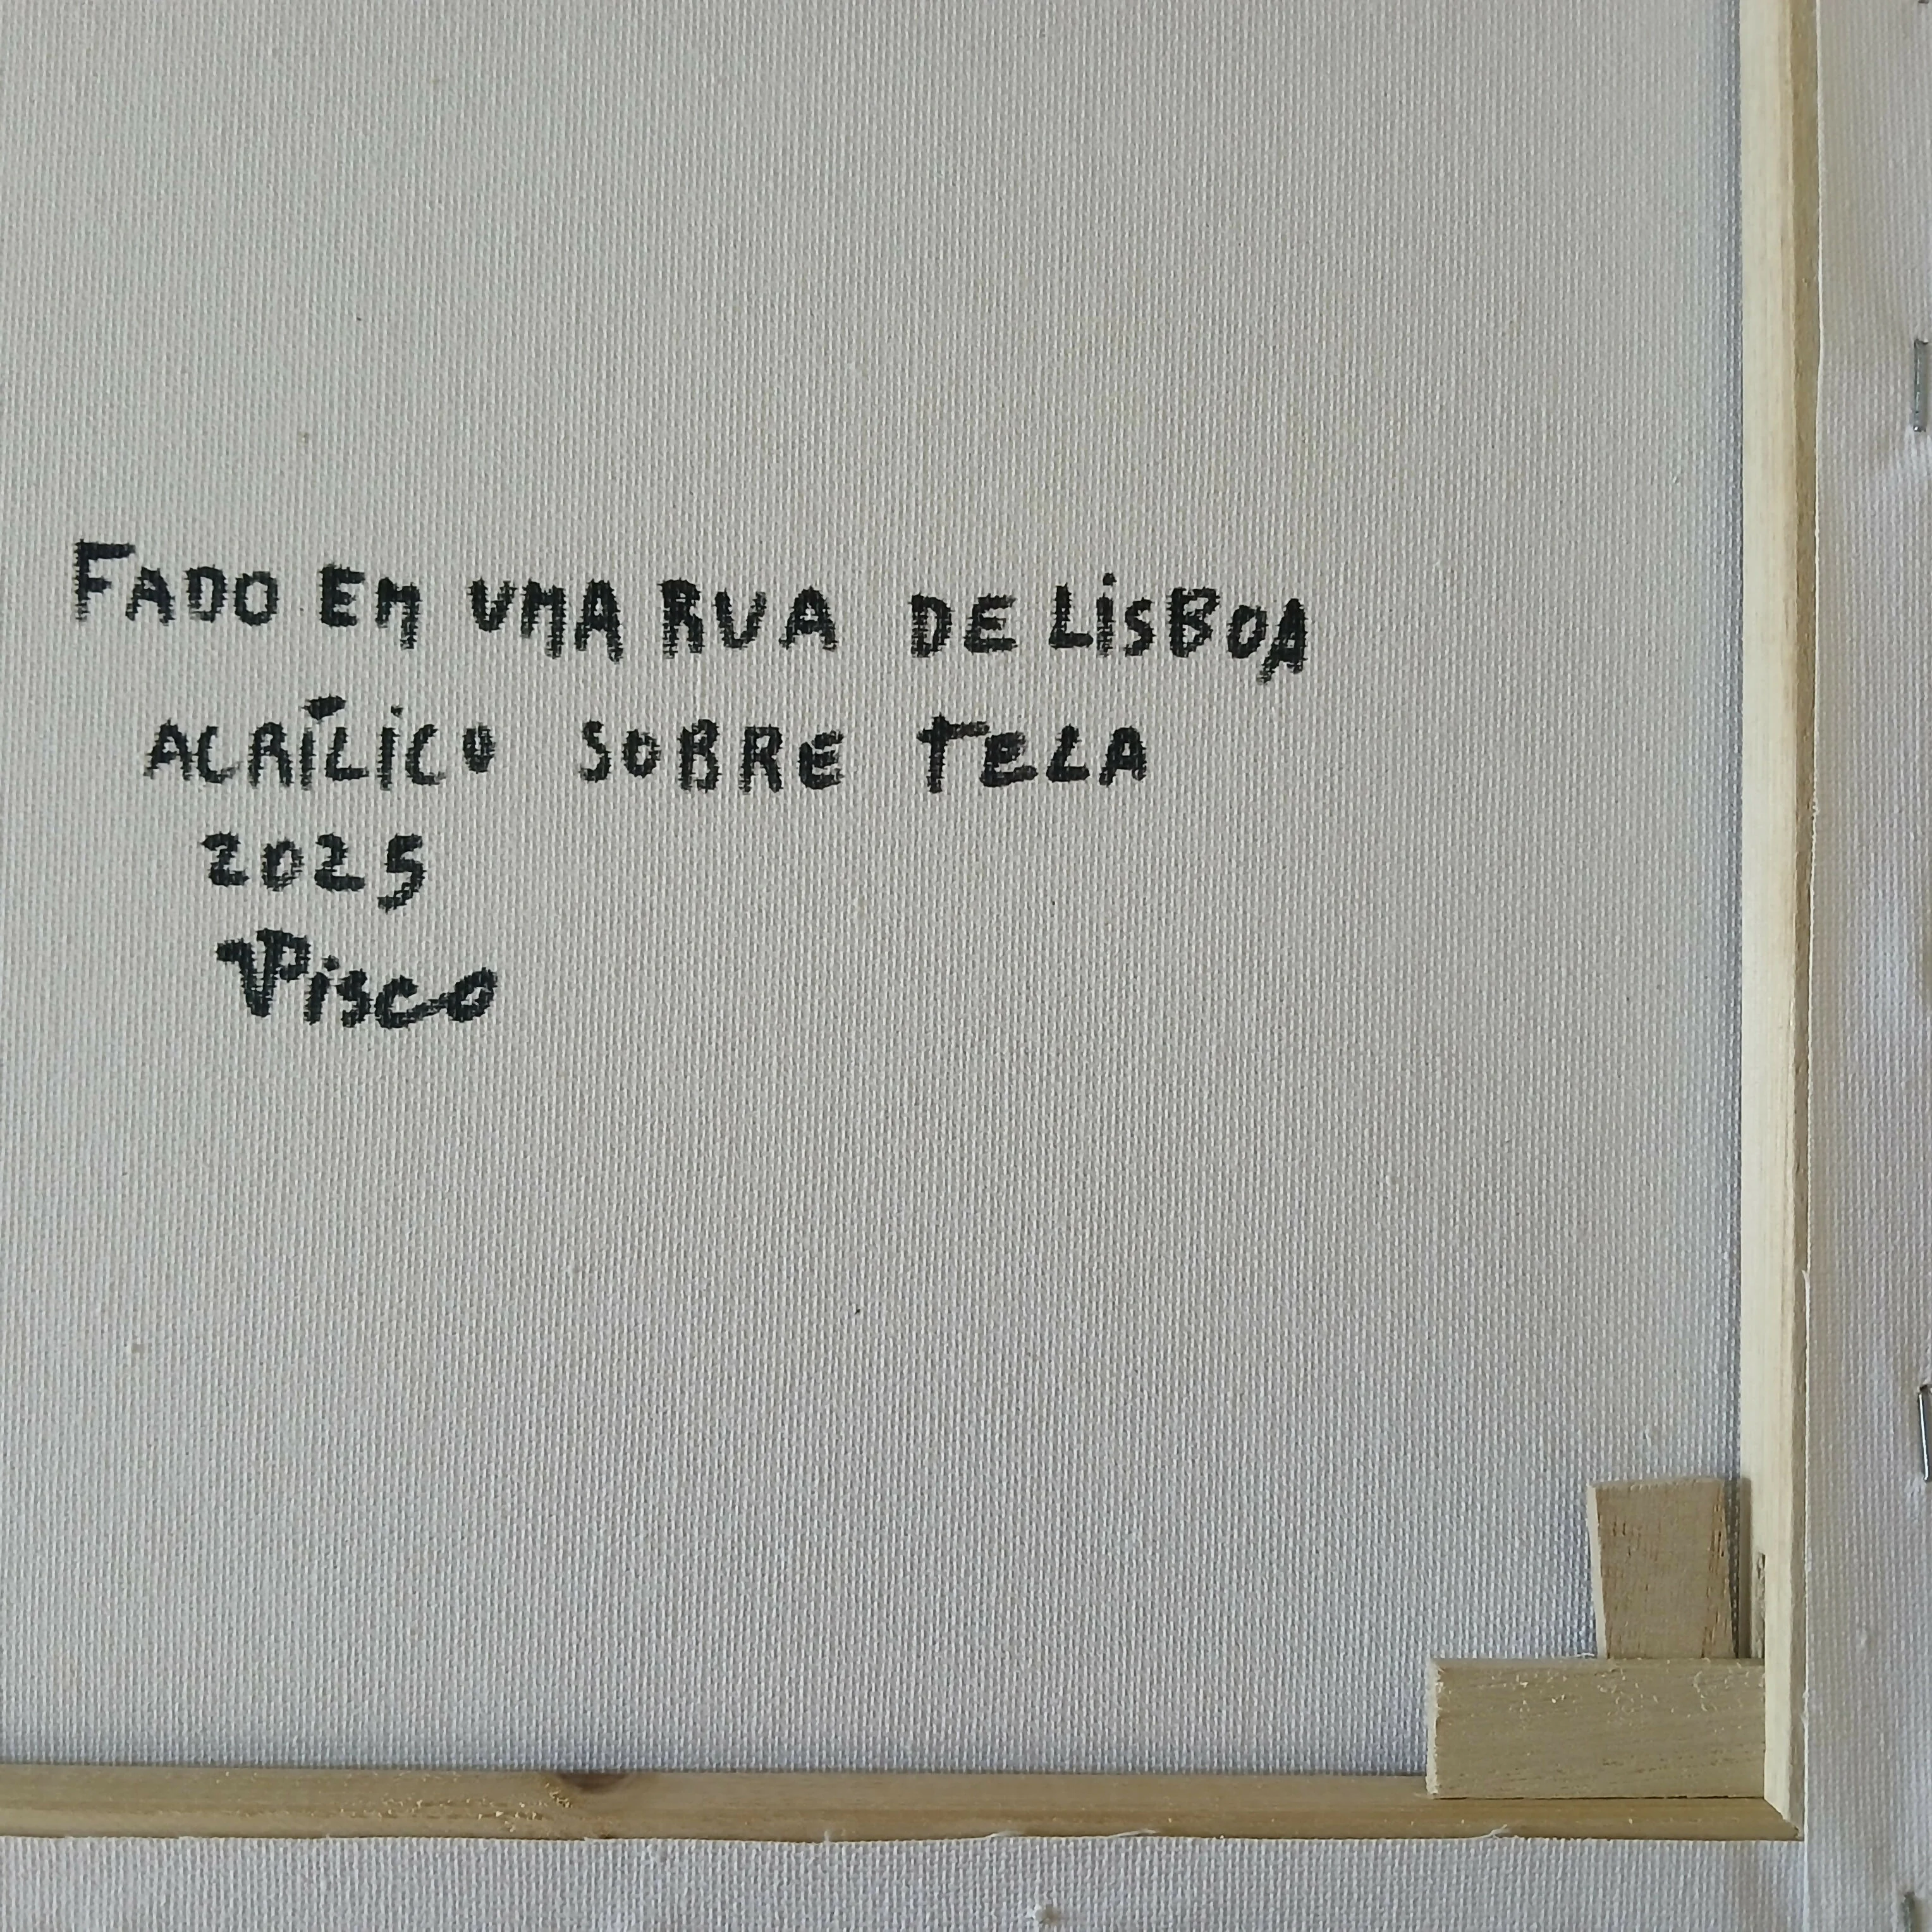 FADO EM UMA RUA DE LiSBOA
ACRÍLiCO SOBRE TeLA
2025
Pisco